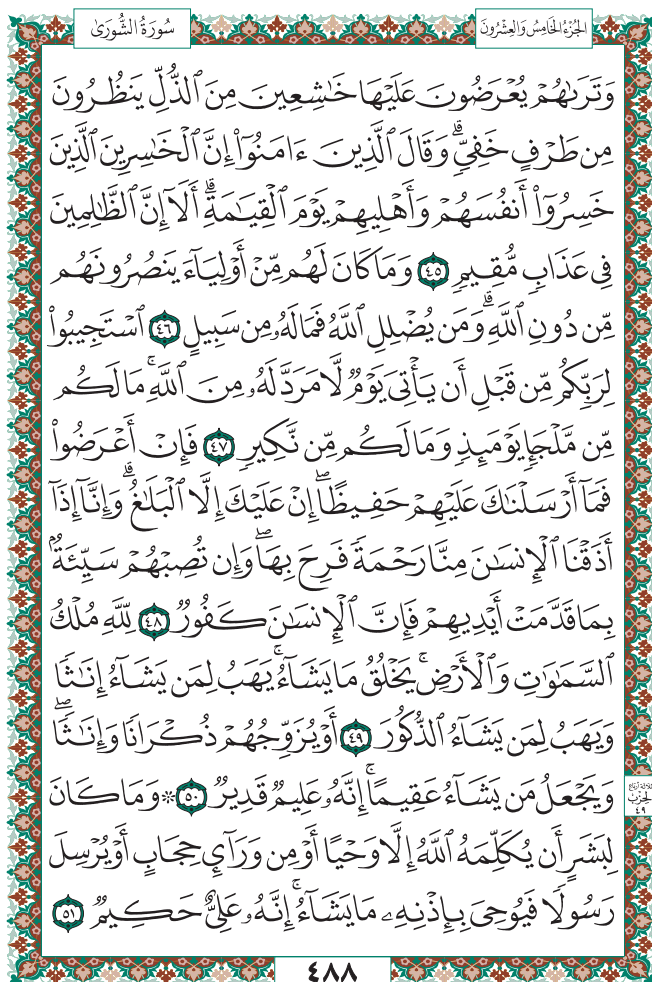 سُورَةُ الشُّورَىٰ
الجُزْءُ الخَامِسُ وَالعِشْرُونَ
وَتَرَىٰهُمْ يُعْرَضُونَ عَلَيْهَا خَٰشِعِينَ مِنَ ٱلذُّلِّ يَنظُرُونَ
مِن طَرْفٍ خَفِيٍّۗ وَقَالَ ٱلَّذِينَ ءَامَنُوٓا۟ إِنَّ ٱلْخَٰسِرِينَ ٱلَّذِينَ
خَسِرُوٓا۟ أَنفُسَهُمْ وَأَهْلِيهِمْ يَوْمَ ٱلْقِيَٰمَةِۗ أَلَآ إِنَّ ٱلظَّٰلِمِينَ
فِى عَذَابٍ مُّقِيمٍ ٤٥ وَمَا كَانَ لَهُم مِّنْ أَوْلِيَآءَ يَنصُرُونَهُم
مِّن دُونِ ٱللَّهِۗ وَمَن يُضْلِلِ ٱللَّهُ فَمَا لَهُۥ مِن سَبِيلٍ ٤٦ ٱسْتَجِيبُوا۟
لِرَبِّكُم مِّن قَبْلِ أَن يَأْتِىَ يَوْمٌ لَّا مَرَدَّ لَهُۥ مِنَ ٱللَّهِۚ مَا لَكُم
مِّن مَّلْجَإٍ يَوْمَئِذٍ وَمَا لَكُم مِّن نَّكِيرٍ ٤٧ فَإِنْ أَعْرَضُوا۟
فَمَآ أَرْسَلْنَٰكَ عَلَيْهِمْ حَفِيظًاۖ إِنْ عَلَيْكَ إِلَّا ٱلْبَلَٰغُۗ وَإِنَّآ إِذَآ
أَذَقْنَا ٱلْإِنسَٰنَ مِنَّا رَحْمَةً فَرِحَ بِهَاۖ وَإِن تُصِبْهُمْ سَيِّئَةٌۢ
بِمَا قَدَّمَتْ أَيْدِيهِمْ فَإِنَّ ٱلْإِنسَٰنَ كَفُورٌ ٤٨ لِّلَّهِ مُلْكُ
ٱلسَّمَٰوَٰتِ وَٱلْأَرْضِۚ يَخْلُقُ مَا يَشَآءُۚ يَهَبُ لِمَن يَشَآءُ إِنَٰثًا
وَيَهَبُ لِمَن يَشَآءُ ٱلذُّكُورَ ٤٩ أَوْ يُزَوِّجُهُمْ ذُكْرَانًا وَإِنَٰثًاۖ
وَيَجْعَلُ مَن يَشَآءُ عَقِيمًاۚ إِنَّهُۥ عَلِيمٌ قَدِيرٌ ٥٠ ۞ وَمَا كَانَ
لِبَشَرٍ أَن يُكَلِّمَهُ ٱللَّهُ إِلَّا وَحْيًا أَوْ مِن وَرَآئِ حِجَابٍ أَوْ يُرْسِلَ
رَسُولًا فَيُوحِىَ بِإِذْنِهِۦ مَا يَشَآءُۚ إِنَّهُۥ عَلِىٌّ حَكِيمٌ ٥١
الحِزْب
٤٩
٤٨٨